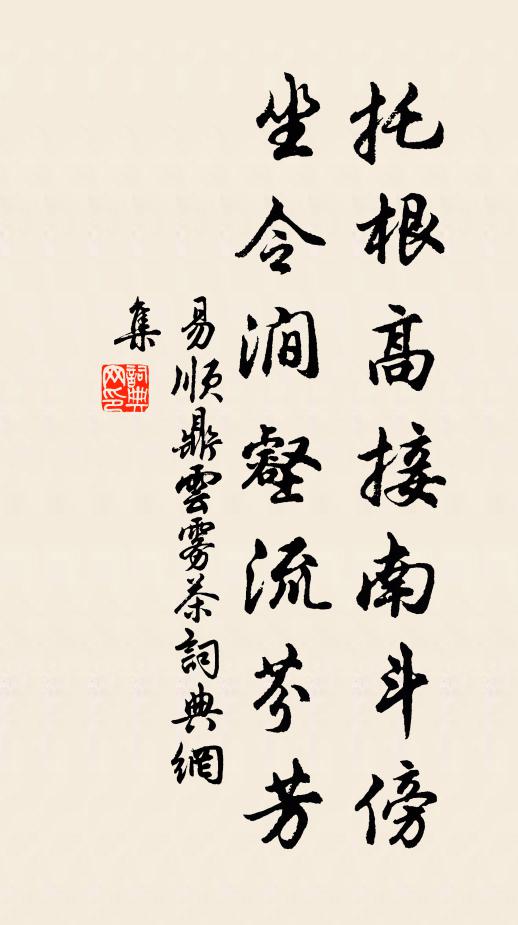 托根高接南斗傍
坐令澗壑流芬芳
易順鼎雲霧茶詞典網
集
詞典
网印